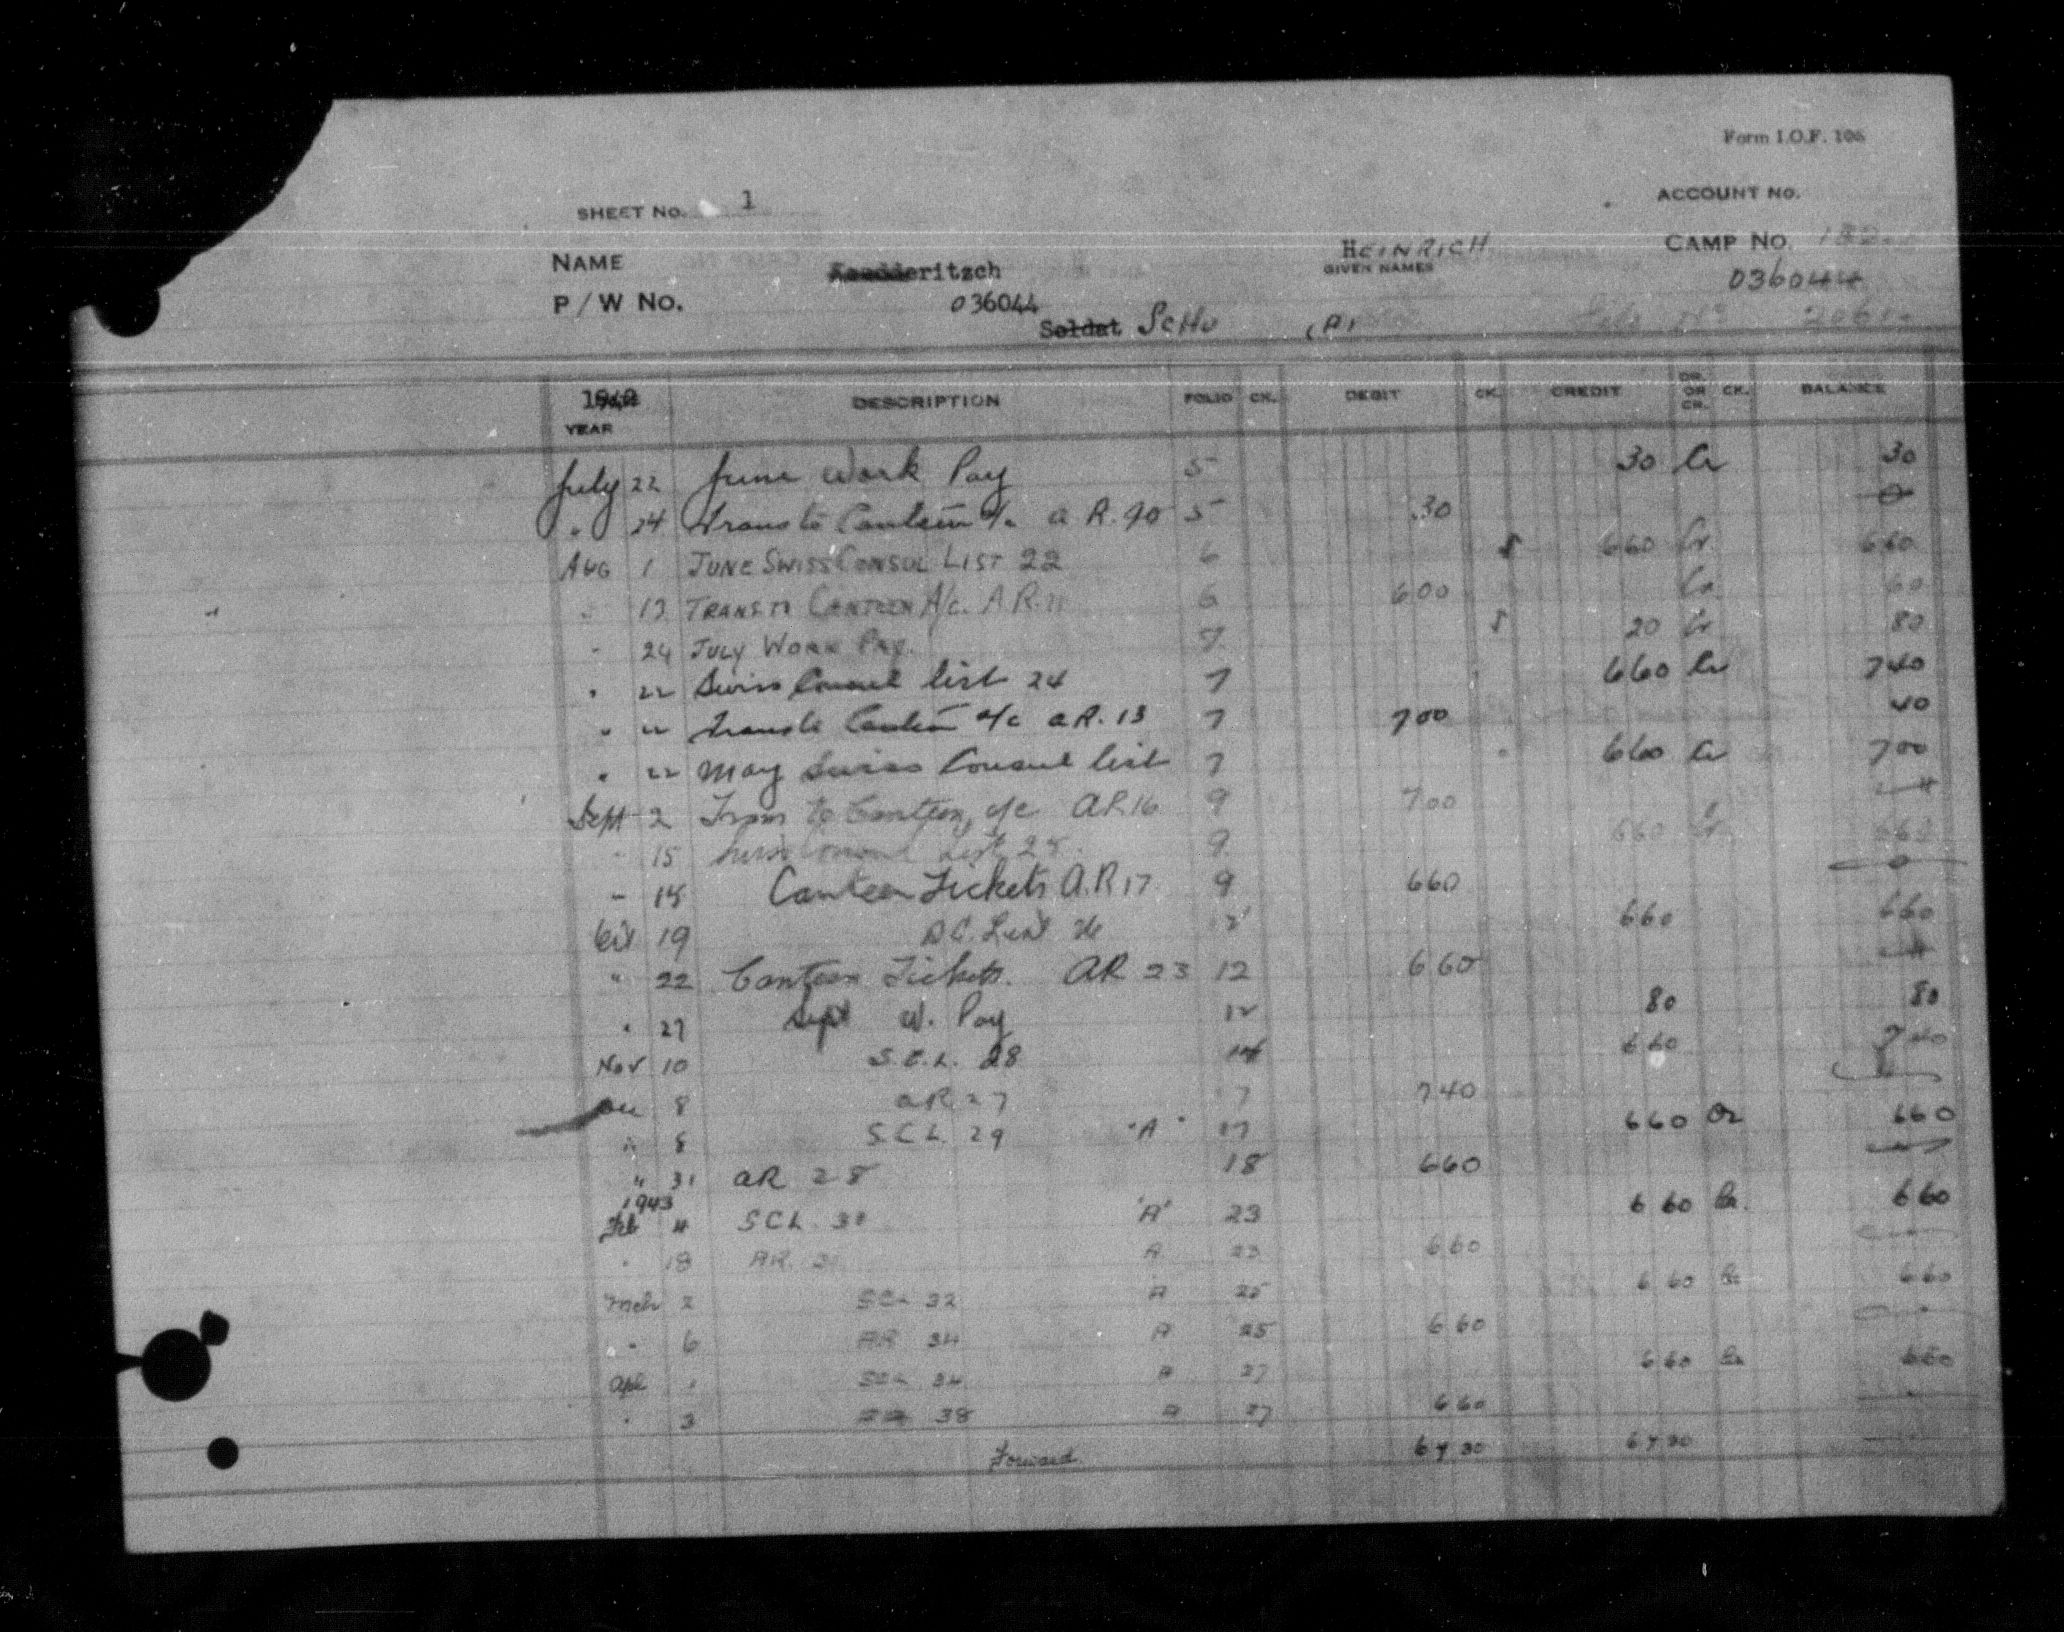 Form I.O.F. 106
SHEET No. 1
ACCOUNT NO.
NAME eritzsch HEINRICH CAMP NO. 132
GIVEN NAMES
P/W No. 036044 036044
Soldat Schu
1942
YEAR DESCRIPTION FOLIO CK. DEBIT CK. CREDIT DR. OR CR. CK. BALANCE
July 22 June Work Pay 5 30 Cr 30
" 24 Trans to Canteen A/c A R. 90 5 30 0
AUG 1 JUNE SWISS CONSUL LIST 22 6 660 Cr 660
" 13 TRANS TO CANTEEN A/c. A.R. 11 6 600 Cr 60
" 24 JULY WORK PAY. 7 20 Cr 80
" 22 Swiss Consul list 24 7 660 Cr 740
" 22 Trans to Canteen A/c A R. 13 7 700 40
" 22 May Swiss Consul list 7 660 Cr 700
Sept 2 Trans to Canteen, A/c A.R. 16 9 700
" 15 Swiss Consul List 25. 9 660 Cr 660
" 15 Canteen Tickets A.R 17. 9 660 0
19 List 12 660 660
" 22 Canteen Tickets. AR 23 12 660
" 27 Sept W. Pay 12 80 80
Nov 10 S.C.L. 28 14 660 740
Dec 8 AR 27 17 740
" 8 S.C.L. 29 "A" 17 660 Cr 660
" 31 AR 28 18 660
1943
Feb 4 SCL 30 "A" 23 6 60 Cr. 6 60
" 18 AR. A 23 6 60
Mch 2 SCL 32 A 25 6 60 Cr 6 60
" 6 AR 34 A 25 6 60
Apl 1 SCL 34 A 27 6 60 Cr 6 60
" 3 AR 38 A 27 6 60
Forward 67 30 67 30